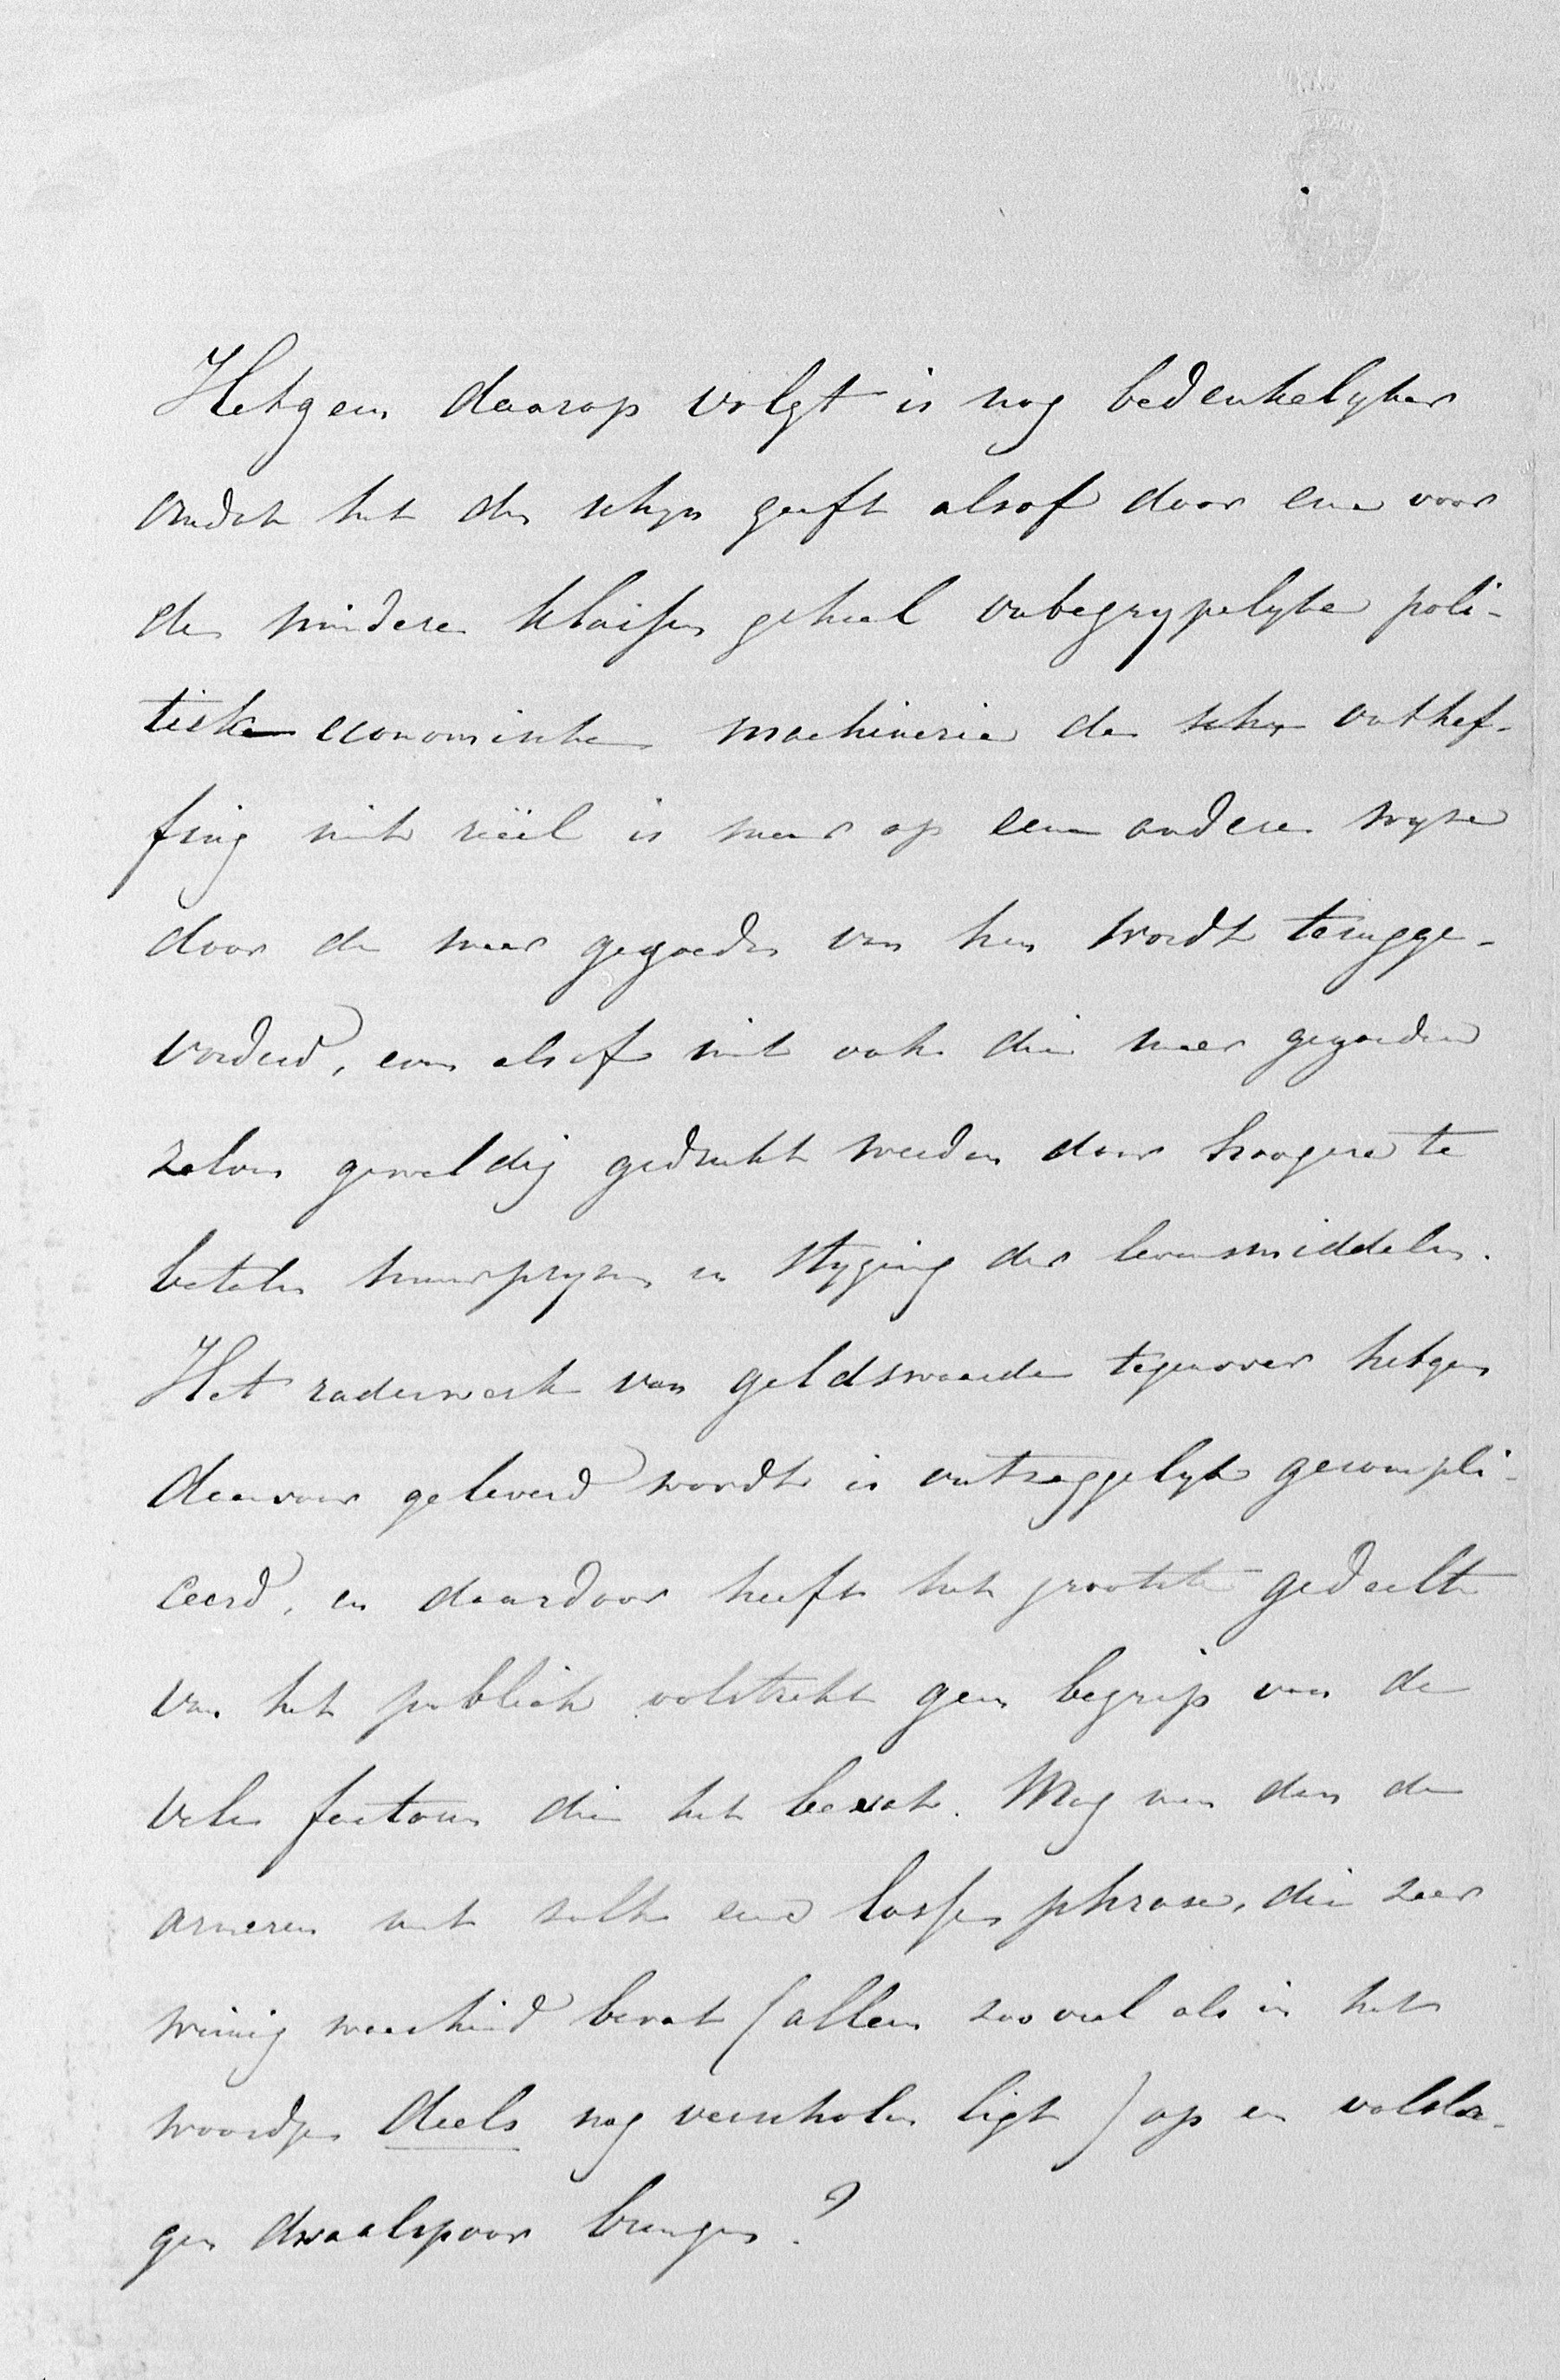 Hetgeen daarop volgt is nog bedenkelyker
omdat het den schyn geeft alsof door eene voor
de mindere klassen geheel onbegrypelyke poli-
tiek economische machinerie de schy onthef-
fing niet reëel is maar op eene andere wyze
door de meer gegoeden van hen wordt terugge-
vorderd, even alsof niet ook die meer gegoeden
zelven geweldig gedrukt werden door hoogere te
betalen huurpryzen en styging der levensmiddelen.
Het raderwerk van geldswaarde tegenover hetgeen
daarvoor geleverd wordt is ontzaggelyk gecompli-
ceerd, en daardoor heeft het grootste gedeelte
van het publiek volstrekt geen begrip van de
vele factoren die het bevat. Mag men dan de
armeren met zulk eene losse phrase, die zeer
weinig waarheid bevat (alleen zooveel als in het
woordje deels nog verscholen ligt) op een volsla-
gen dwaalspoor brengen?